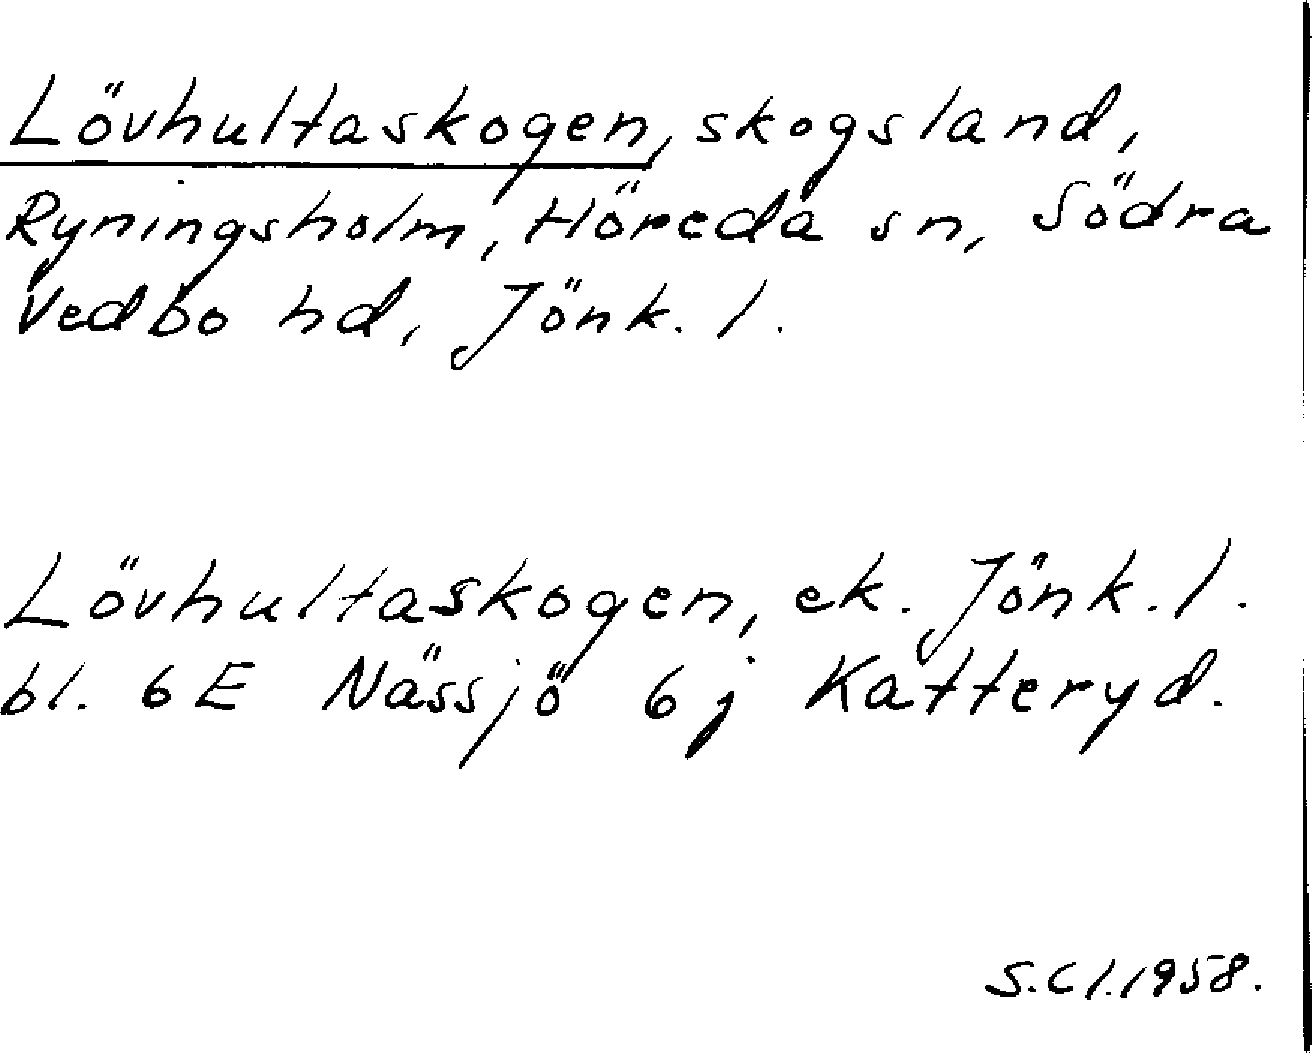 Lövhultaskogen, skogsland,
Ryningsholm, Höreda sn, Södra
Vedbo hd, Jönk. l.
Lövhultaskogen, ek. Jönk. l.
bl. 6 E Nässjö 6 j Katteryd.
S.Cl.1958.